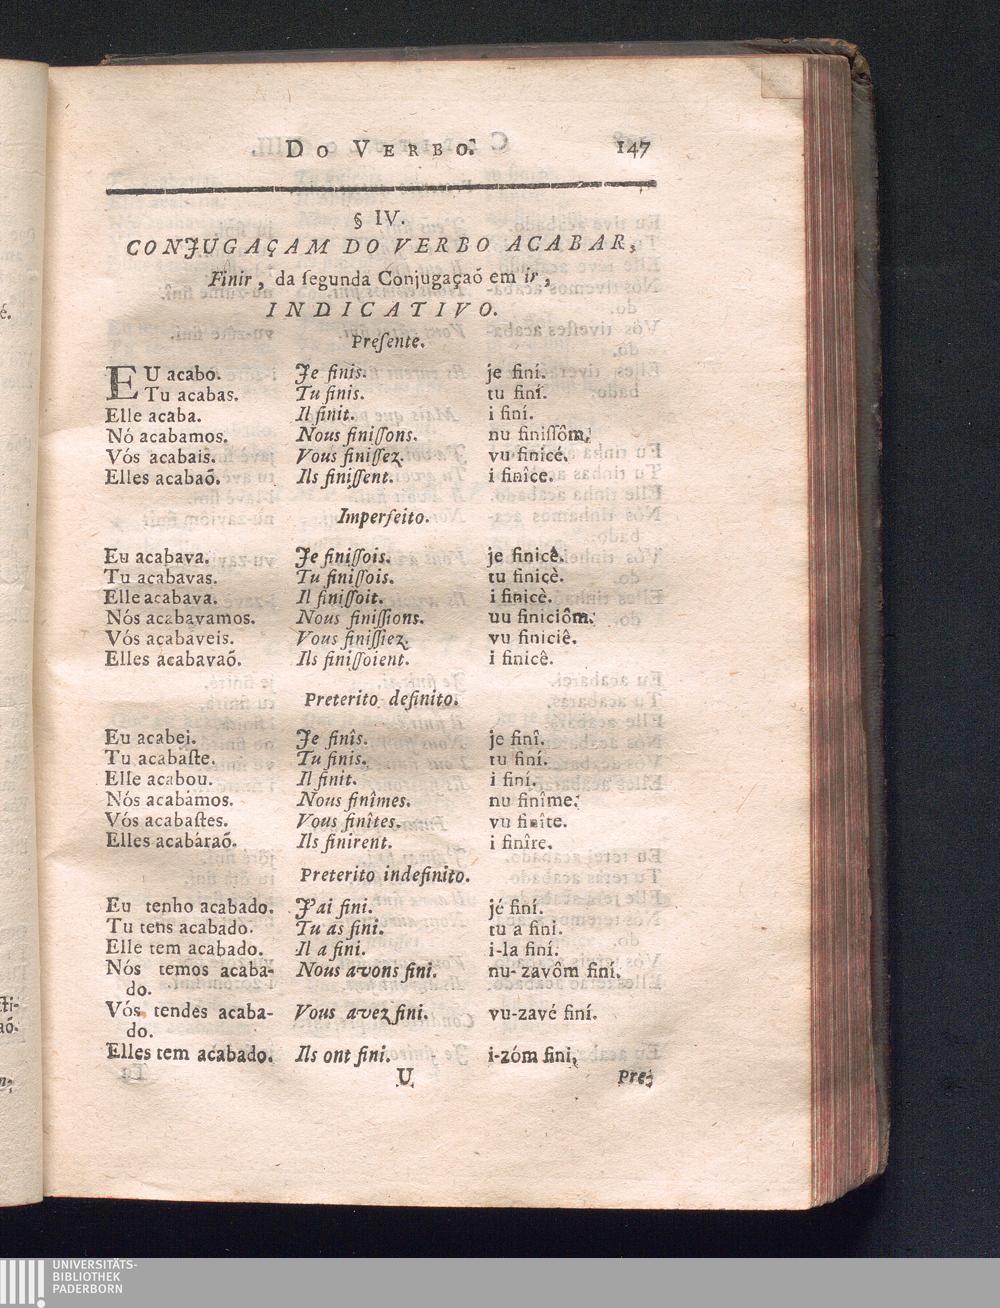 Do Verbo. 147
§ IV.
CONJUGAÇAM DO VERBO ACABAR,
Finir, da ſegunda Conjugaçaõ em ir,
INDICATIVO.
Preſente.
EU acabo. Je finis. je finí.
Tu acabas. Tu finis. tu finí.
Elle acaba. Il finit. i finí.
Nó acabamos. Nous finiſſons. nu finiſſôm.
Vós acabais. Vous finiſſez. vu finicé.
Elles acabaõ. Ils finiſſent. i finîce.
Imperfeito.
Eu acabava. Je finiſſois. je finicè.
Tu acabavas. Tu finiſſois. tu finicè.
Elle acabava. Il finiſſoit. i finicè.
Nós acabavamos. Nous finiſſions. uu finiciôm.
Vós acabaveis. Vous finiſſiez. vu finiciê.
Elles acabavaõ. Ils finiſſoient. i finicê.
Preterito definito.
Eu acabei. Je finîs. je finî.
Tu acabaſte. Tu finis. tu finí.
Elle acabou. Il finit. i finí.
Nós acabámos. Nous finîmes. nu finîme.
Vós acabaſtes. Vous finîtes. vu finîte.
Elles acabáraõ. Ils finirent. i finîre.
Preterito indefinito.
Eu tenho acabado. J'ai fini. jé finí.
Tu tens acabado. Tu as fini. tu a finí.
Elle tem acabado. Il a fini. i-la finí.
Nós temos acaba- Nous avons fini. nu-zavôm finí.
do.
Vós tendes acaba- Vous avez fini. vu-zavé finí.
do.
Elles tem acabado. Ils ont fini. i-zóm fini,
U Pre-
UNIVERSITÄTS-
BIBLIOTHEK
PADERBORN